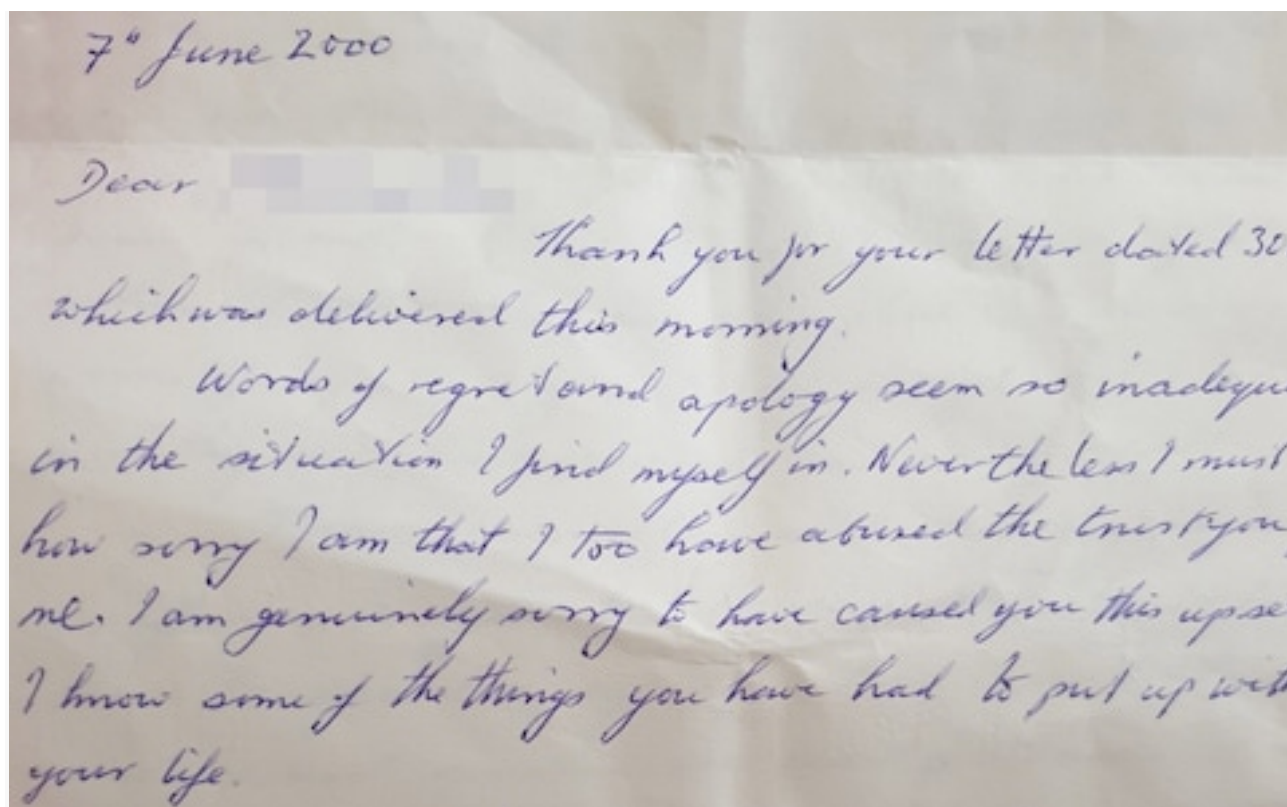 7th June 2000
Dear
Thank you for your letter dated 30
which was delivered this morning.
Words of regret and apology seem so inadequ
in the situation I find myself in. Nevertheless I must
how sorry I am that I too have abused the trust you
me. I am genuinely sorry to have caused you this upse
I know some of the things you have had to put up with
your life.